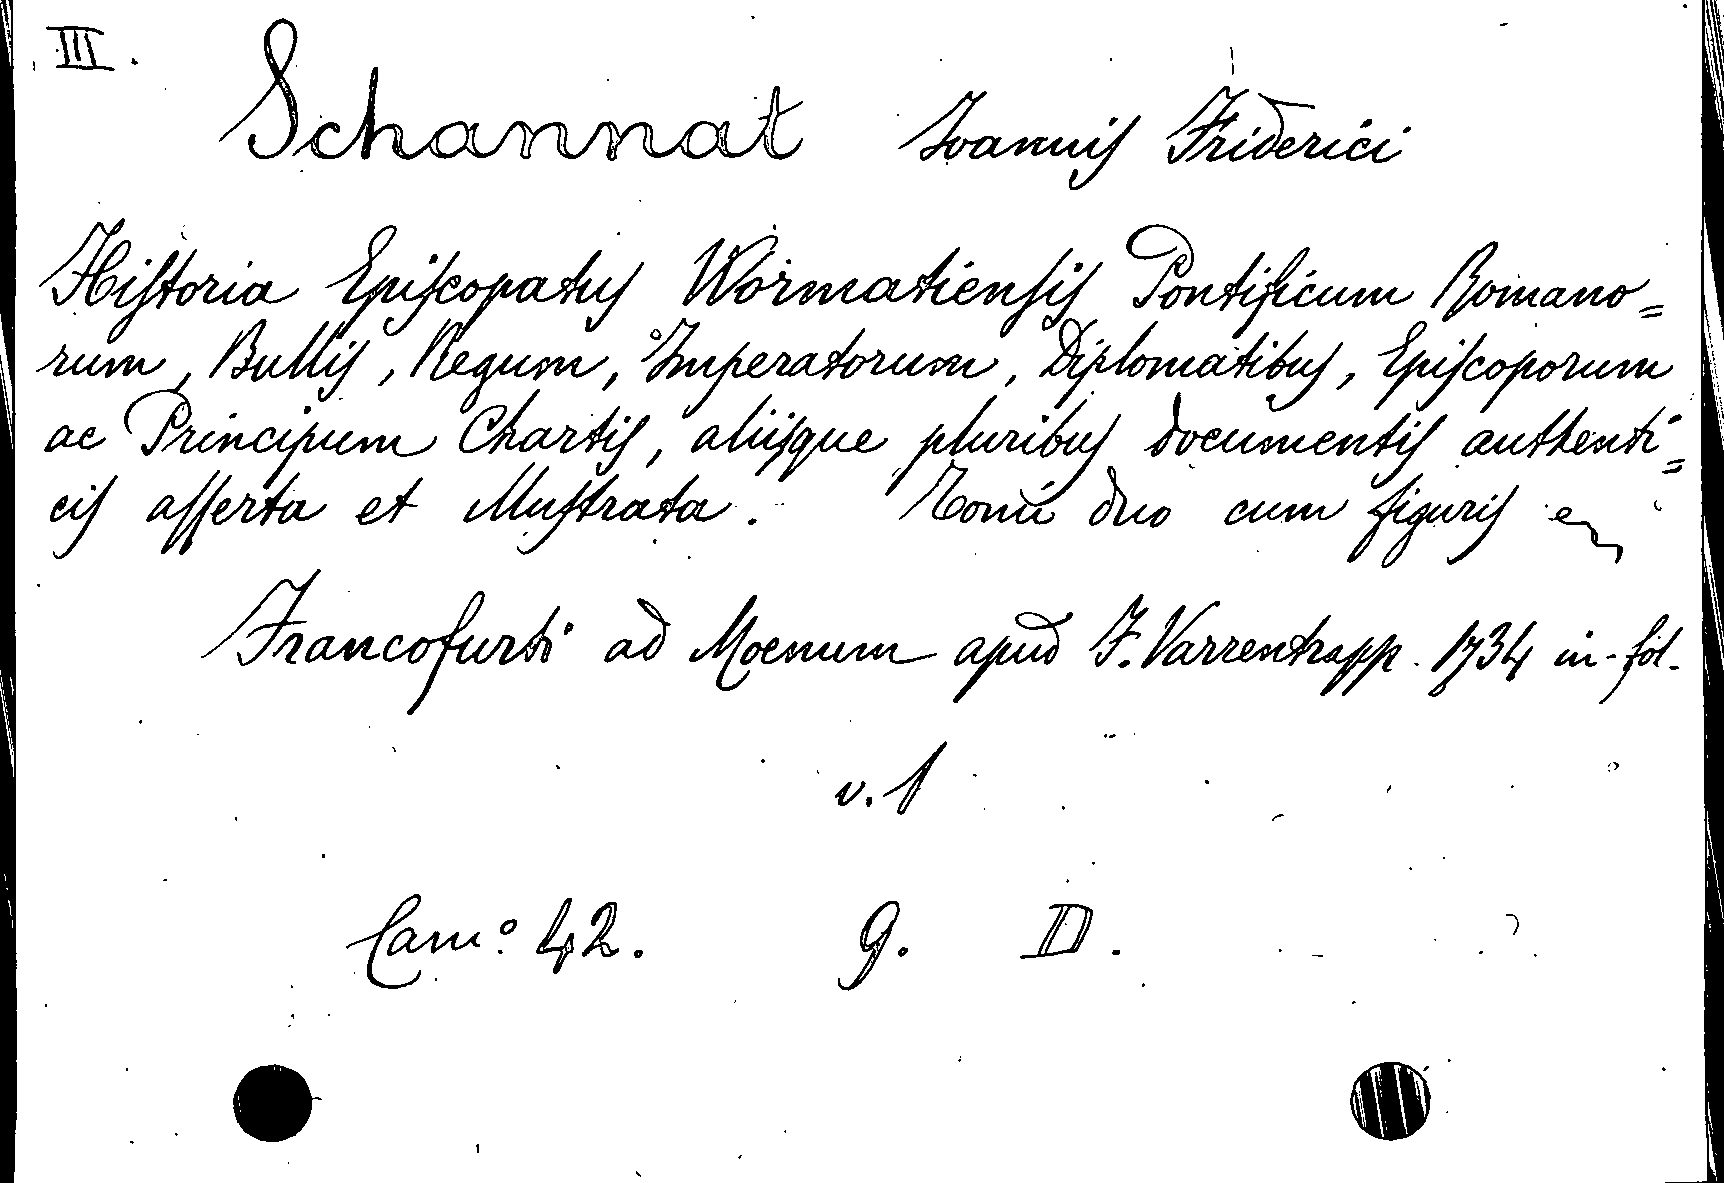 III.
Schannat Ioannis Friderici
Historia Episcopatus Wormatiensis Pontificum Romano=
rum, Bullis, Regum, Imperatorum, Diplomatibus, Episcoporum
ac Principum Chartis, aliisque pluribus documentis authenti=
cis asserta et illustrata. Tomi duo cum figuris
Francofurti ad Moenum apud F. Varrentrapp. 1734 in-fol.
v. 1
Cam.° 42. G. D.